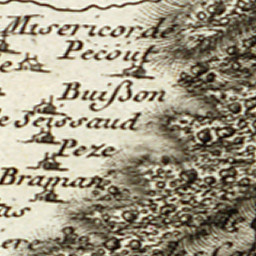 Misericorde
Pecout
e
Buißon
e Seissaud
Peze
Braman
as
ere